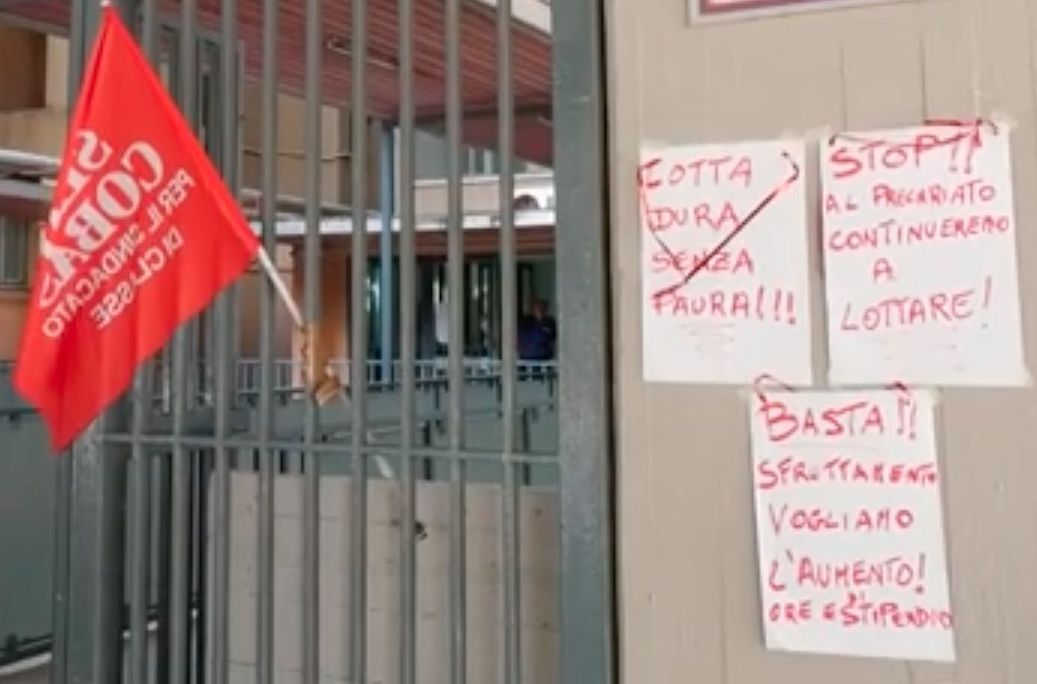 SI
COBAS
PER IL SINDACATO
DI CLASSE
LOTTA
DURA
SENZA
PAURA!!!
STOP!!
AL PRECARIATO
CONTINUEREMO
A
LOTTARE!
BASTA!!
SFRUTTAMENTO
VOGLIAMO
L'AUMENTO!
ORE E STIPENDIO